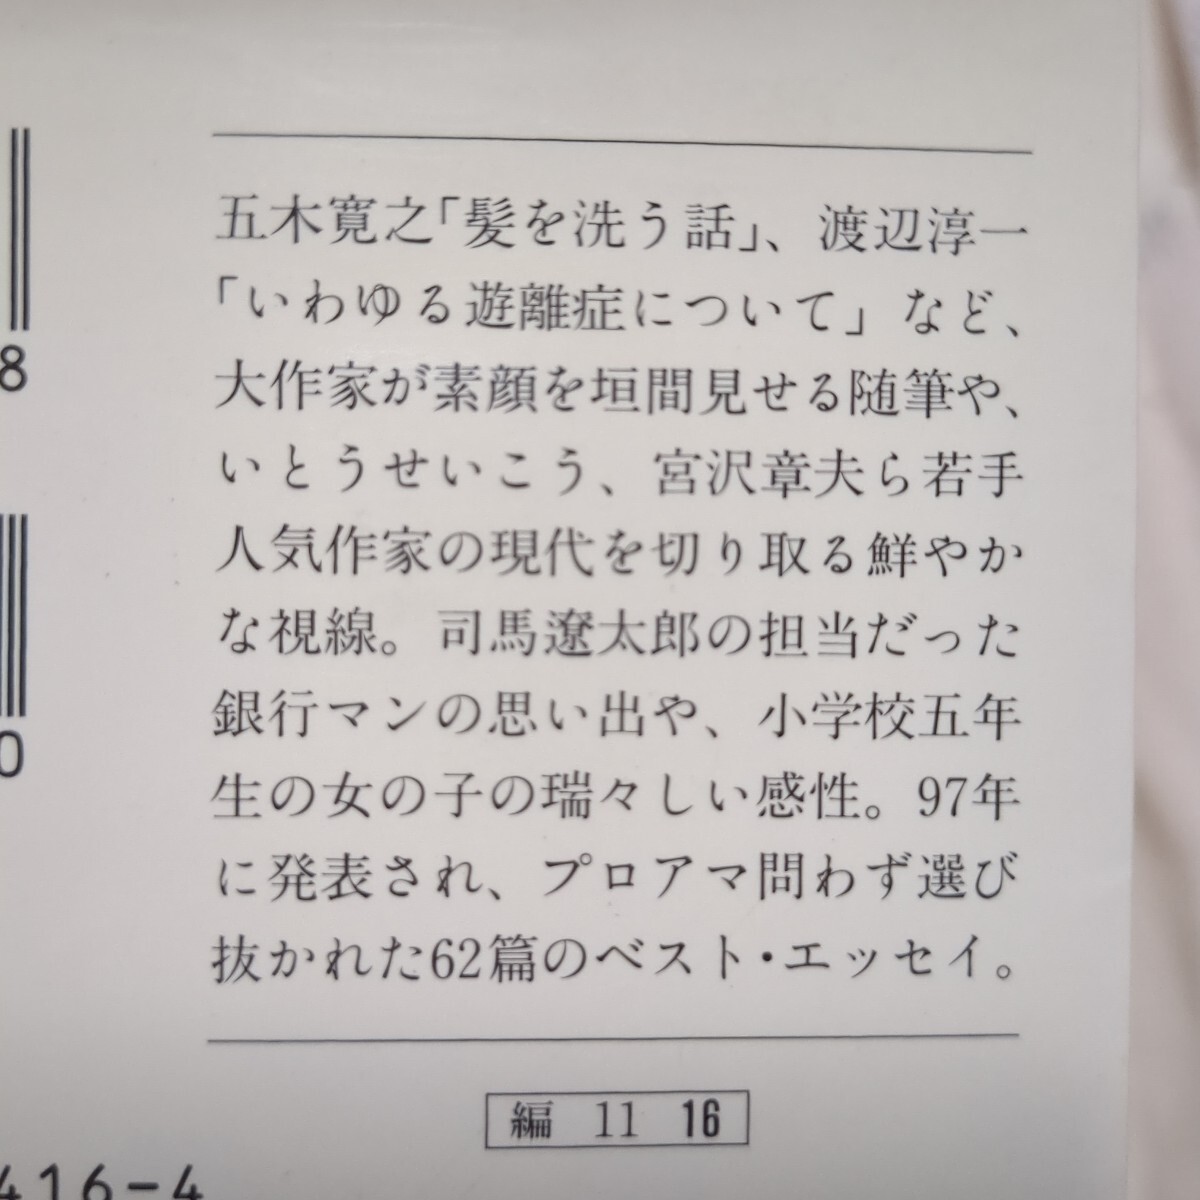 五木寛之「髪を洗う話」、渡辺淳一
「いわゆる遊離症について」など、
大作家が素顔を垣間見せる随筆や、
いとうせいこう、宮沢章夫ら若手
人気作家の現代を切り取る鮮やか
な視線。司馬遼太郎の担当だった
銀行マンの思い出や、小学校五年
生の女の子の瑞々しい感性。97年
に発表され、プロアマ問わず選び
抜かれた62篇のベスト・エッセイ。
編 11 16
8
0
416-4